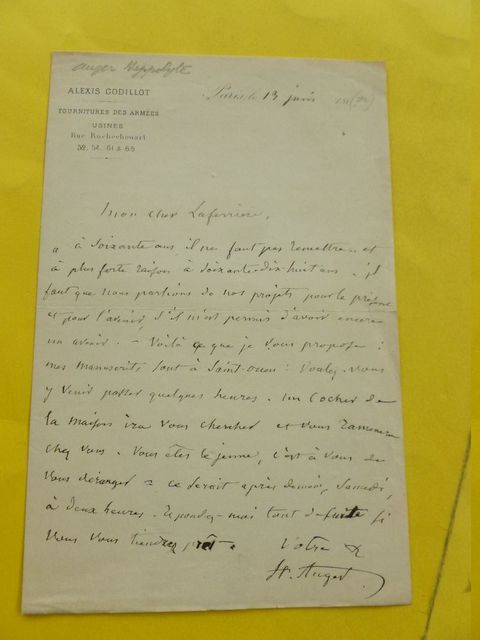 Auger Hippolyte
ALEXIS GODILLOT
FOURNITURES DES ARMÉES
USINES
Rue Rochechouart
52, 54, 61 & 65
Paris, le 13 juin 18
Mon cher Laferrière,
à soixante ans il ne faut pas remettre et
à plus forte raison à soixante-dix-huit ans. Il
faut que nous parlions de nos projets pour le présent
et pour l'avenir, s'il m'est permis d'avoir encore
un avenir. – Voilà ce que je vous propose :
mes manuscrits sont à Saint-Ouen : voulez-vous
y venir passer quelques heures. Un cocher de
la maison ira vous chercher et vous ramènera
chez vous. Vous êtes le jeune, c'est à vous de
vous déranger = ce serait après demain, samedi,
à deux heures. Répondez-moi tout de suite si
vous vous tiendrez prêt.
Votre
H. Auger